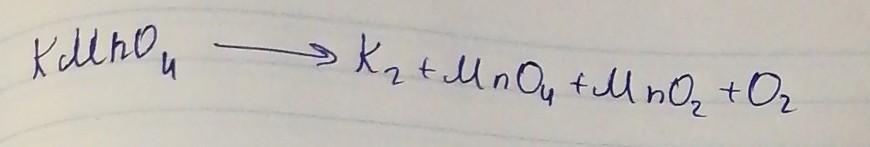 KMnO₄ ⟶ K₂ + MnO₄ + MnO₂ + O₂